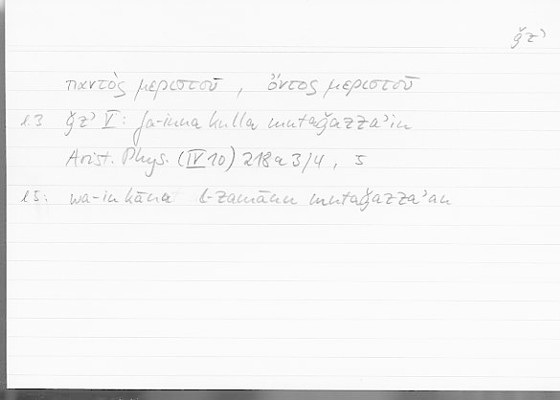 ǧzʾ
παντὸς μεριστοῦ, ὄντος μεριστοῦ
l.3 ǧzʾ V: fa-inna kulla mutaǧazzaʾin
Arist. Phys. (IV 10) 218a3/4, 5
l.5: wa-in kāna l-zamānu mutaǧazzaʾan